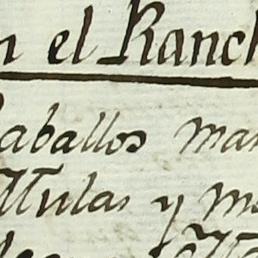 n el Ranch
Caballos man
Mulas y m